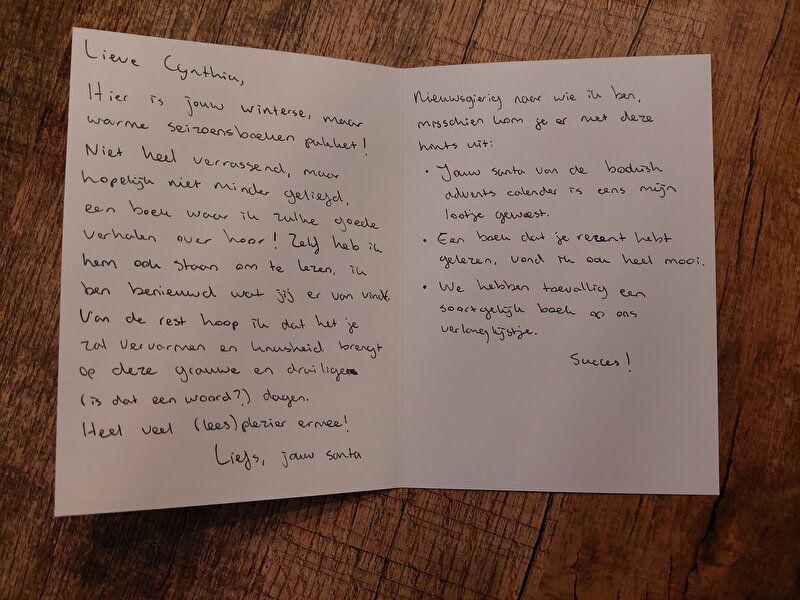 Lieve Cynthia,
Hier is jouw winterse, maar
warme seizoensboeken pakket!
Niet heel verrassend, maar
hopelijk niet minder geliefd,
een boek waar ik zulke goede
verhalen over hoor! Zelf heb ik
hem ook staan om te lezen, ik
ben benieuwd wat jij er van vindt.
Van de rest hoop ik dat het je
zal verwarmen en knusheid brengt
op deze grauwe en druilige
(is dat een woord?) dagen.
Heel veel (lees)plezier ermee!
Liefs, jouw santa
Nieuwsgierig naar wie ik ben,
misschien kom je er met deze
hints uit:
• Jouw santa van de bookish
advents calender is eens mijn
lootje geweest.
• Een boek dat je recent hebt
gelezen, vond ik ook heel mooi.
• We hebben toevallig een
soortgelijk boek op ons
verlanglijstje.
Succes!